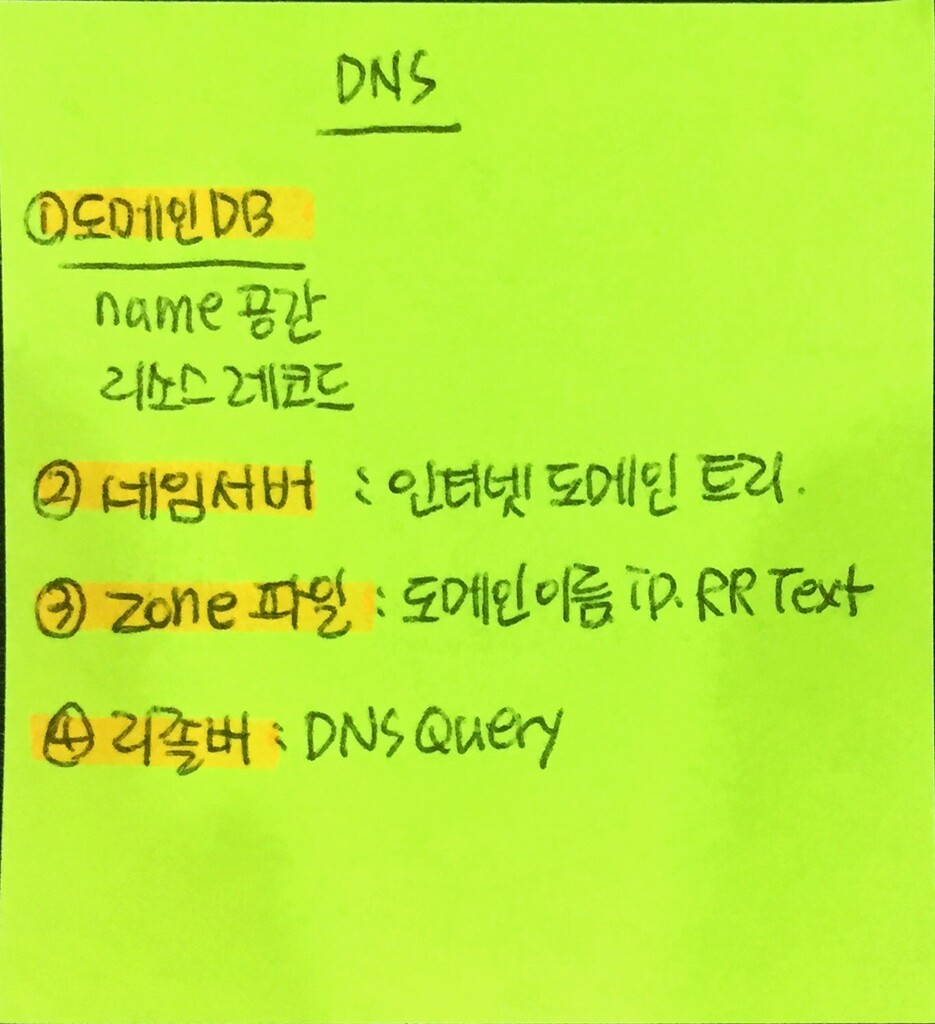 DNS
①도메인DB
name 공간
리소스 레코드
② 네임서버 : 인터넷 도메인 트리.
③ Zone 파일 : 도메인이름 iP. RR Text
④ 리졸버 : DNS Query